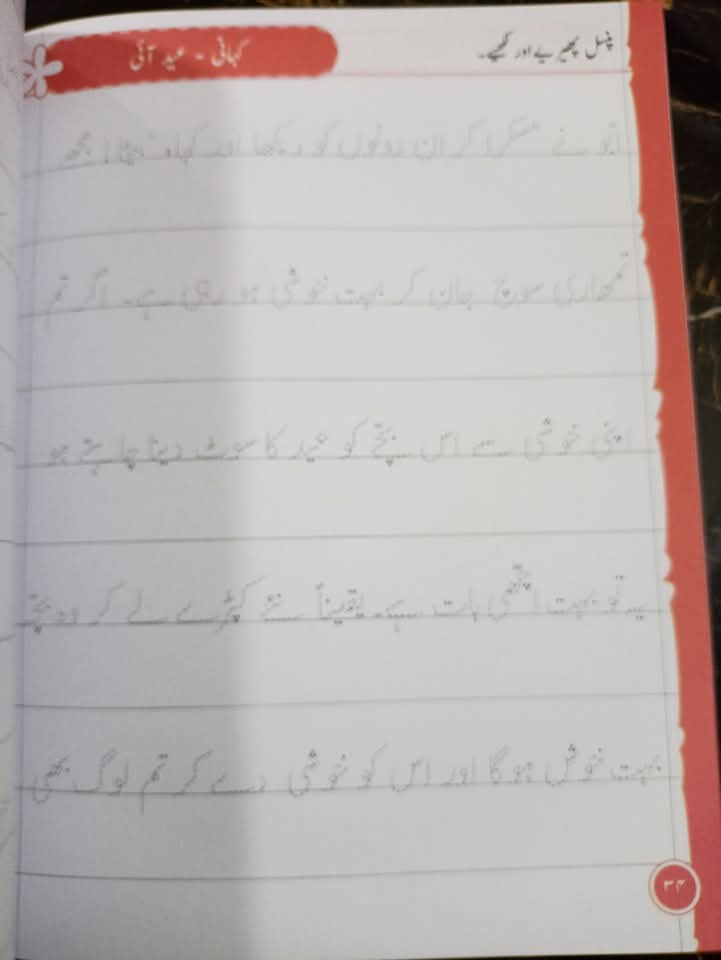 پنسل پھیریے اور لکھیے۔
کہانی - عید آئی
ابّو نے مسکرا کر ان دونوں کو دیکھا اور کہا، "بیٹا! مجھے
تمھاری سوچ جان کر بہت خوشی ہو رہی ہے۔ اگر تم
اپنی خوشی سے اس بچّے کو عید کا سوٹ دینا چاہتے ہو
یہ تو بہت اچّھی بات ہے۔ یقیناً نئے کپڑے لے کر وہ بچّہ
بہت خوش ہو گا اور اس کو خوشی دے کر تم لوگ بھی
۳۴